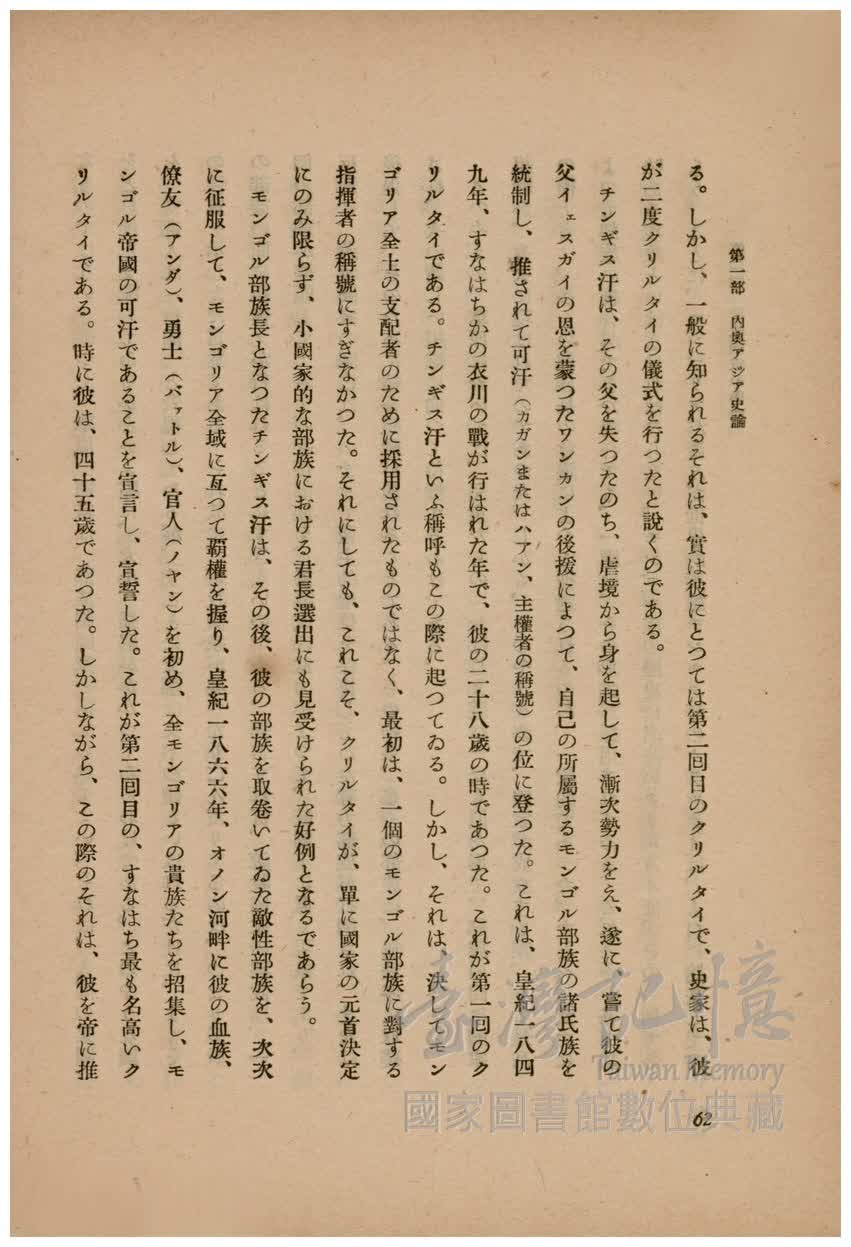 第一部　內奧アジア史論
る。しかし、一般に知られるそれは、實は彼にとつては第二回目のクリルタイで、史家は、彼
が二度クリルタイの儀式を行つたと說くのである。
チンギス汗は、その父を失つたのち、虐境から身を起して、漸次勢力をえ、遂に、嘗て彼の
父イェスガイの恩を蒙つたワンカンの後援によつて、自己の所屬するモンゴル部族の諸氏族を
統制し、推されて可汗（カガンまたはハアン、主權者の稱號）の位に登つた。これは、皇紀一八四
九年、すなはちかの衣川の戰が行はれた年で、彼の二十八歲の時であつた。これが第一回のク
リルタイである。チンギス汗といふ稱呼もこの際に起つてゐる。しかし、それは、決してモン
ゴリア全土の支配者のために採用されたものではなく、最初は、一個のモンゴル部族に對する
指揮者の稱號にすぎなかつた。それにしても、これこそ、クリルタイが、單に國家の元首決定
にのみ限らず、小國家的な部族における君長選出にも見受けられた好例となるであらう。
モンゴル部族長となつたチンギス汗は、その後、彼の部族を取卷いてゐた敵性部族を、次次
に征服して、モンゴリア全域に亙つて覇權を握り、皇紀一八六六年、オノン河畔に彼の血族、
僚友（アンダ）、勇士（バァトル）、官人（ノヤン）を初め、全モンゴリアの貴族たちを招集し、モ
ンゴル帝國の可汗であることを宣言し、宣誓した。これが第二回目の、すなはち最も名高いク
リルタイである。時に彼は、四十五歲であつた。しかしながら、この際のそれは、彼を帝に推
62
臺灣記憶
Taiwan Memory
國家圖書館數位典藏